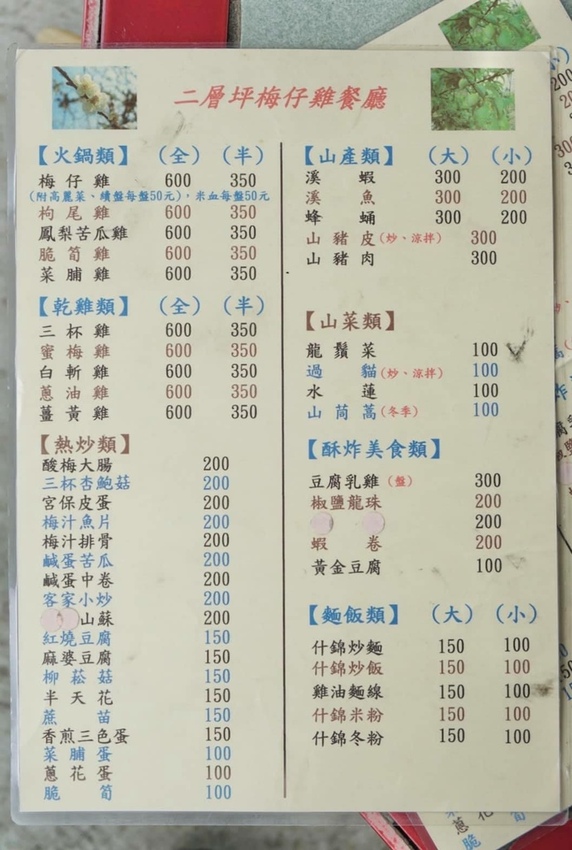 二層坪梅仔雞餐廳
【火鍋類】 (全) (半)
梅仔雞 600 350
(附高麗菜、續盤每盤50元),米血每盤50元
枸尾雞 600 350
鳳梨苦瓜雞 600 350
脆筍雞 600 350
菜脯雞 600 350
【乾雞類】 (全) (半)
三杯雞 600 350
蜜梅雞 600 350
白斬雞 600 350
蔥油雞 600 350
薑黃雞 600 350
【熱炒類】
酸梅大腸 200
三杯杏鮑菇 200
宮保皮蛋 200
梅汁魚片 200
梅汁排骨 200
鹹蛋苦瓜 200
鹹蛋中卷 200
客家小炒 200
山蘇 200
紅燒豆腐 150
麻婆豆腐 150
柳菘菇 150
半天花 150
蔗苗 150
香煎三色蛋 150
菜脯蛋 100
蔥花蛋 100
脆筍 100
【山產類】 (大) (小)
溪蝦 300 200
溪魚 300 200
蜂蛹 300 200
山豬皮(炒、涼拌) 300
山豬肉 300
【山菜類】
龍鬚菜 100
過貓(炒、涼拌) 100
水蓮 100
山茼蒿(冬季) 100
【酥炸美食類】
豆腐乳雞(盤) 300
椒鹽龍珠 200
200
蝦卷 200
黃金豆腐 100
【麵飯類】 (大) (小)
什錦炒麵 150 100
什錦炒飯 150 100
雞油麵線 150 100
什錦米粉 150 100
什錦冬粉 150 100